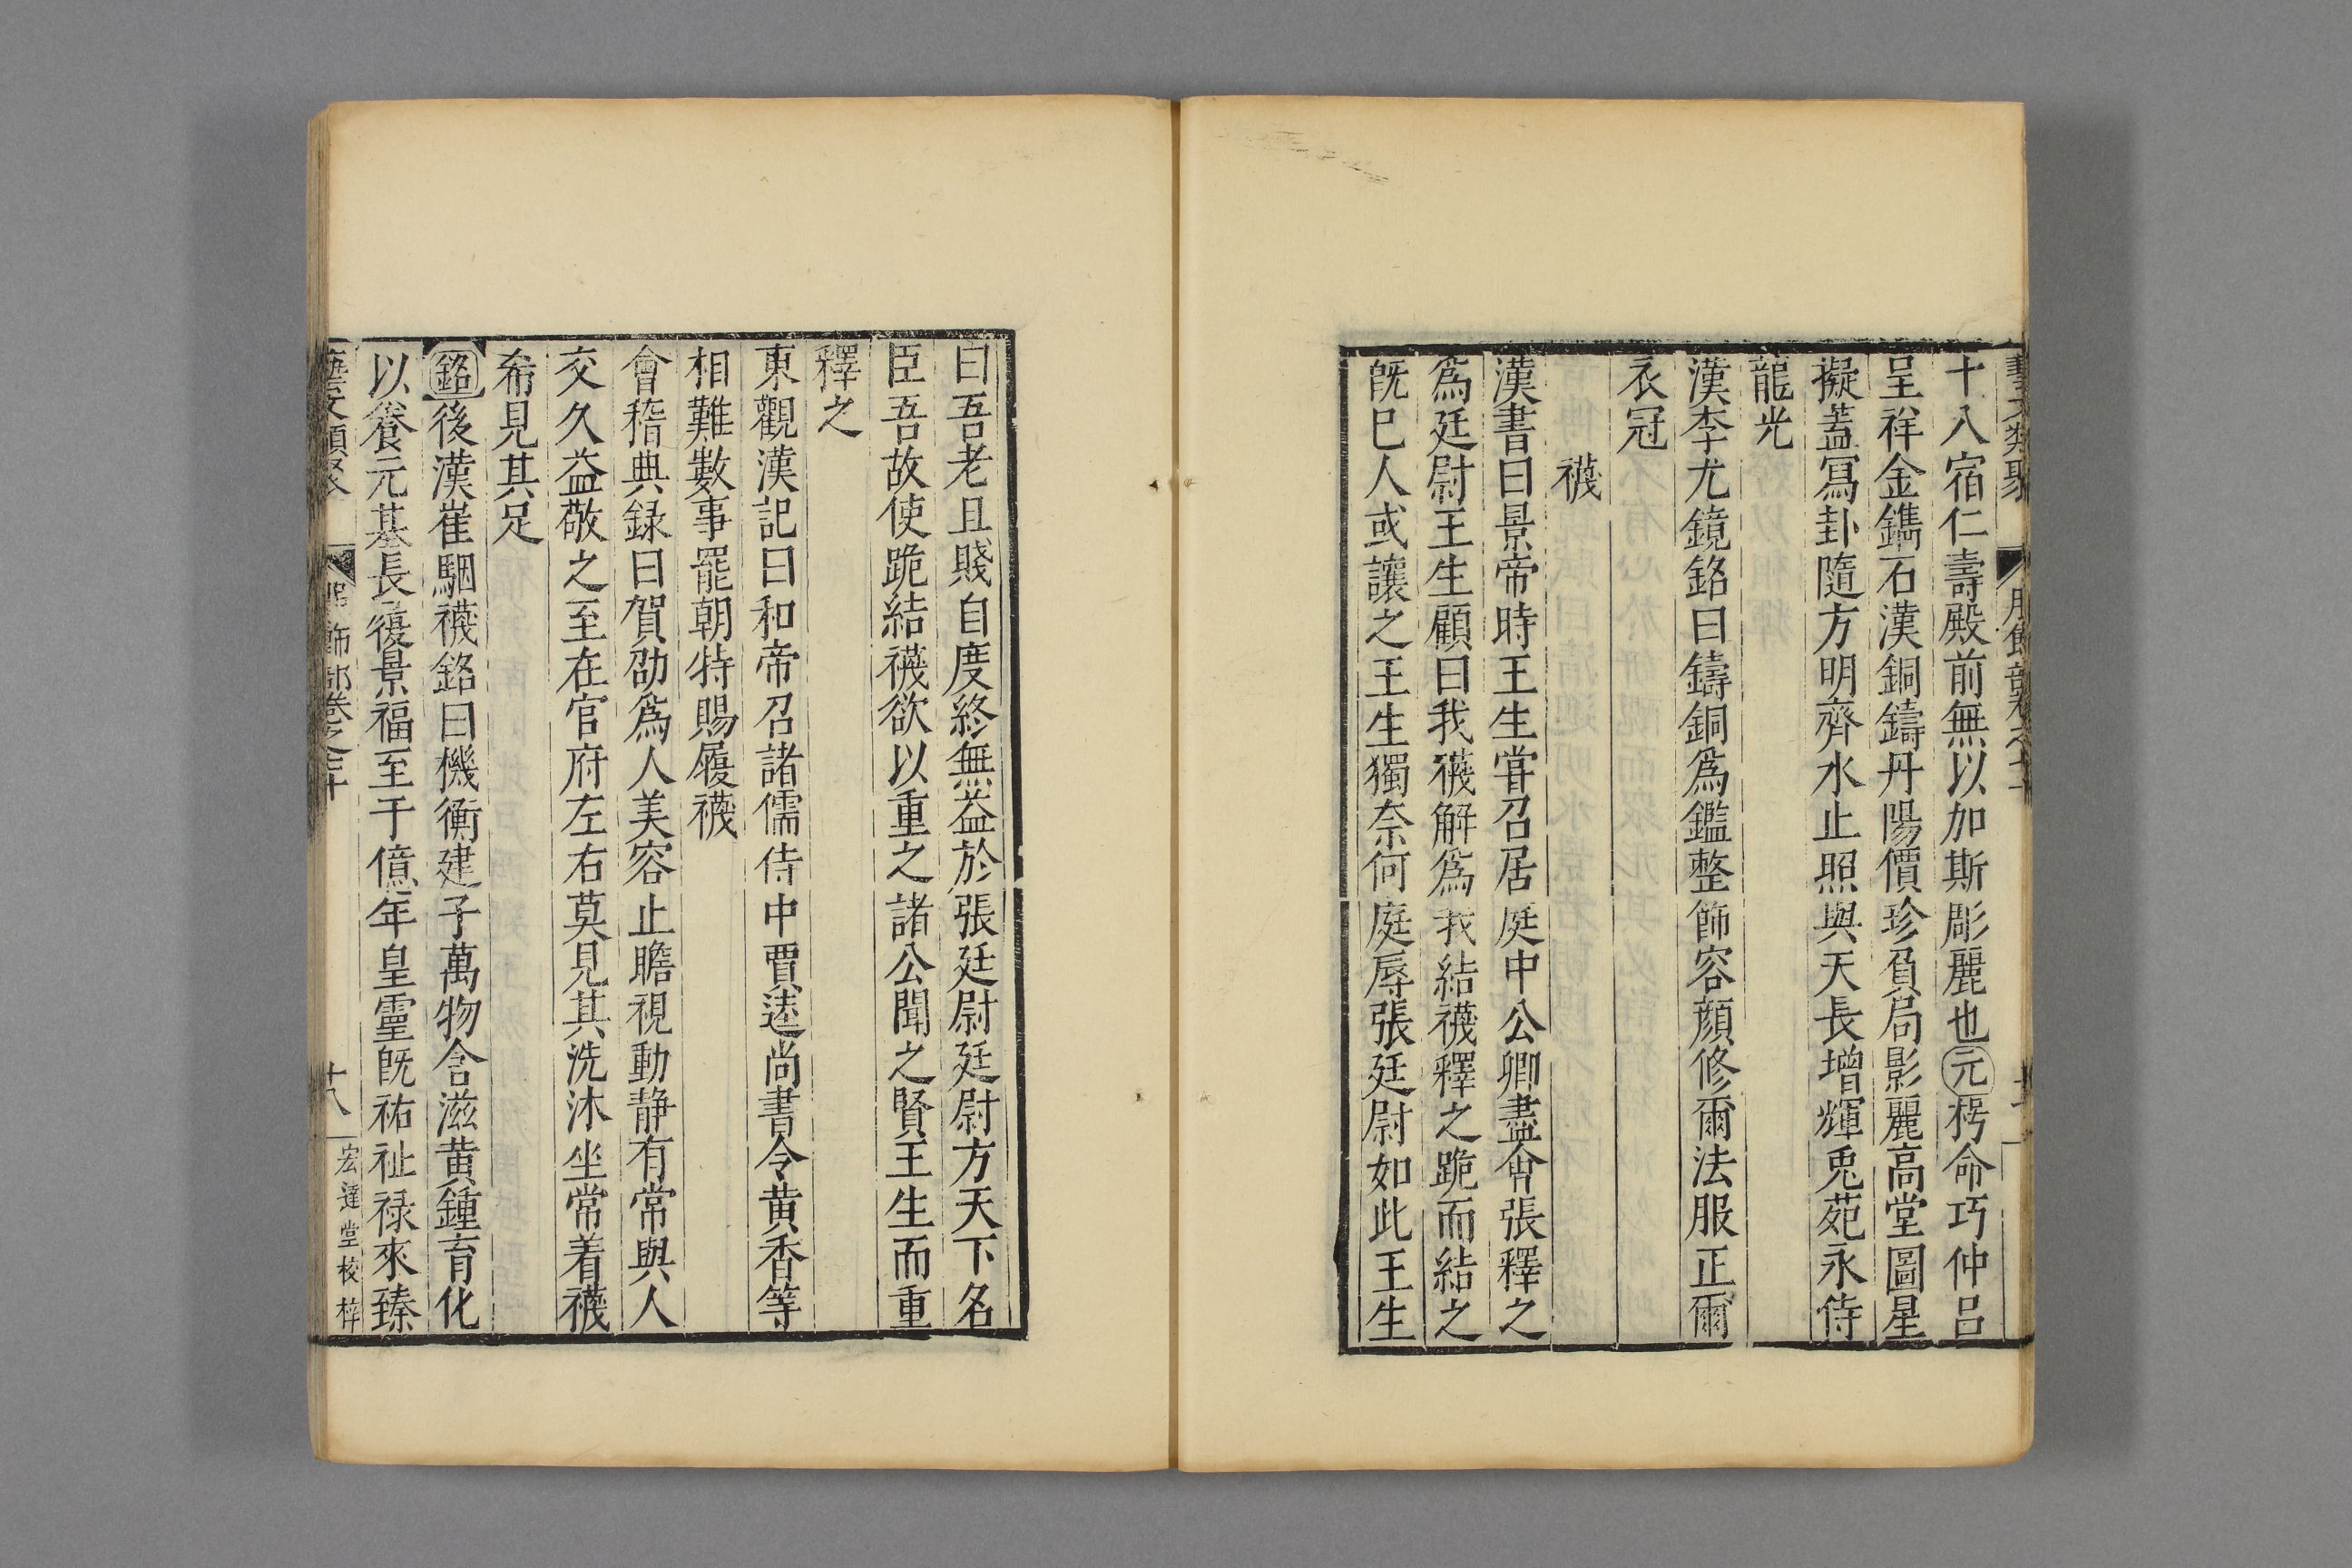 十八宿仁壽殿前無以加斯彫麗也元枵命巧仲呂
呈祥金鐫石漢銅鑄丹陽價珍負局影麗高堂圖星
擬蓋冩卦隨方明齊水止照與天長增輝兎苑永侍
龍光
漢李尤鏡銘曰鑄銅爲鑑整飾容顔修爾法服正爾
衣冠
襪
漢書曰景帝時王生甞召居庭中公卿盡會張釋之
爲廷尉王生顧曰我襪解爲我結襪釋之跪而結之
旣巳人或讓之王生獨奈何庭辱張廷尉如此王生
曰吾老且賤自度終無益於張廷尉廷尉方天下名
臣吾故使跪結襪欲以重之諸公聞之賢王生而重
釋之
東觀漢記曰和帝召諸儒侍中賈逵尚書令黄香等
相難數事罷朝特賜履襪
會稽典録曰賀劭爲人美容止瞻視動静有常與人
交久益敬之至在官府左右莫見其洗沐坐常着襪
希見其足
銘後漢崔駰襪銘曰機衡建子萬物含滋黄鍾育化
以養元基長履景福至于億年皇靈旣祐祉禄來臻
藝文類聚 服飾部卷之七十 十八 宏達堂校梓